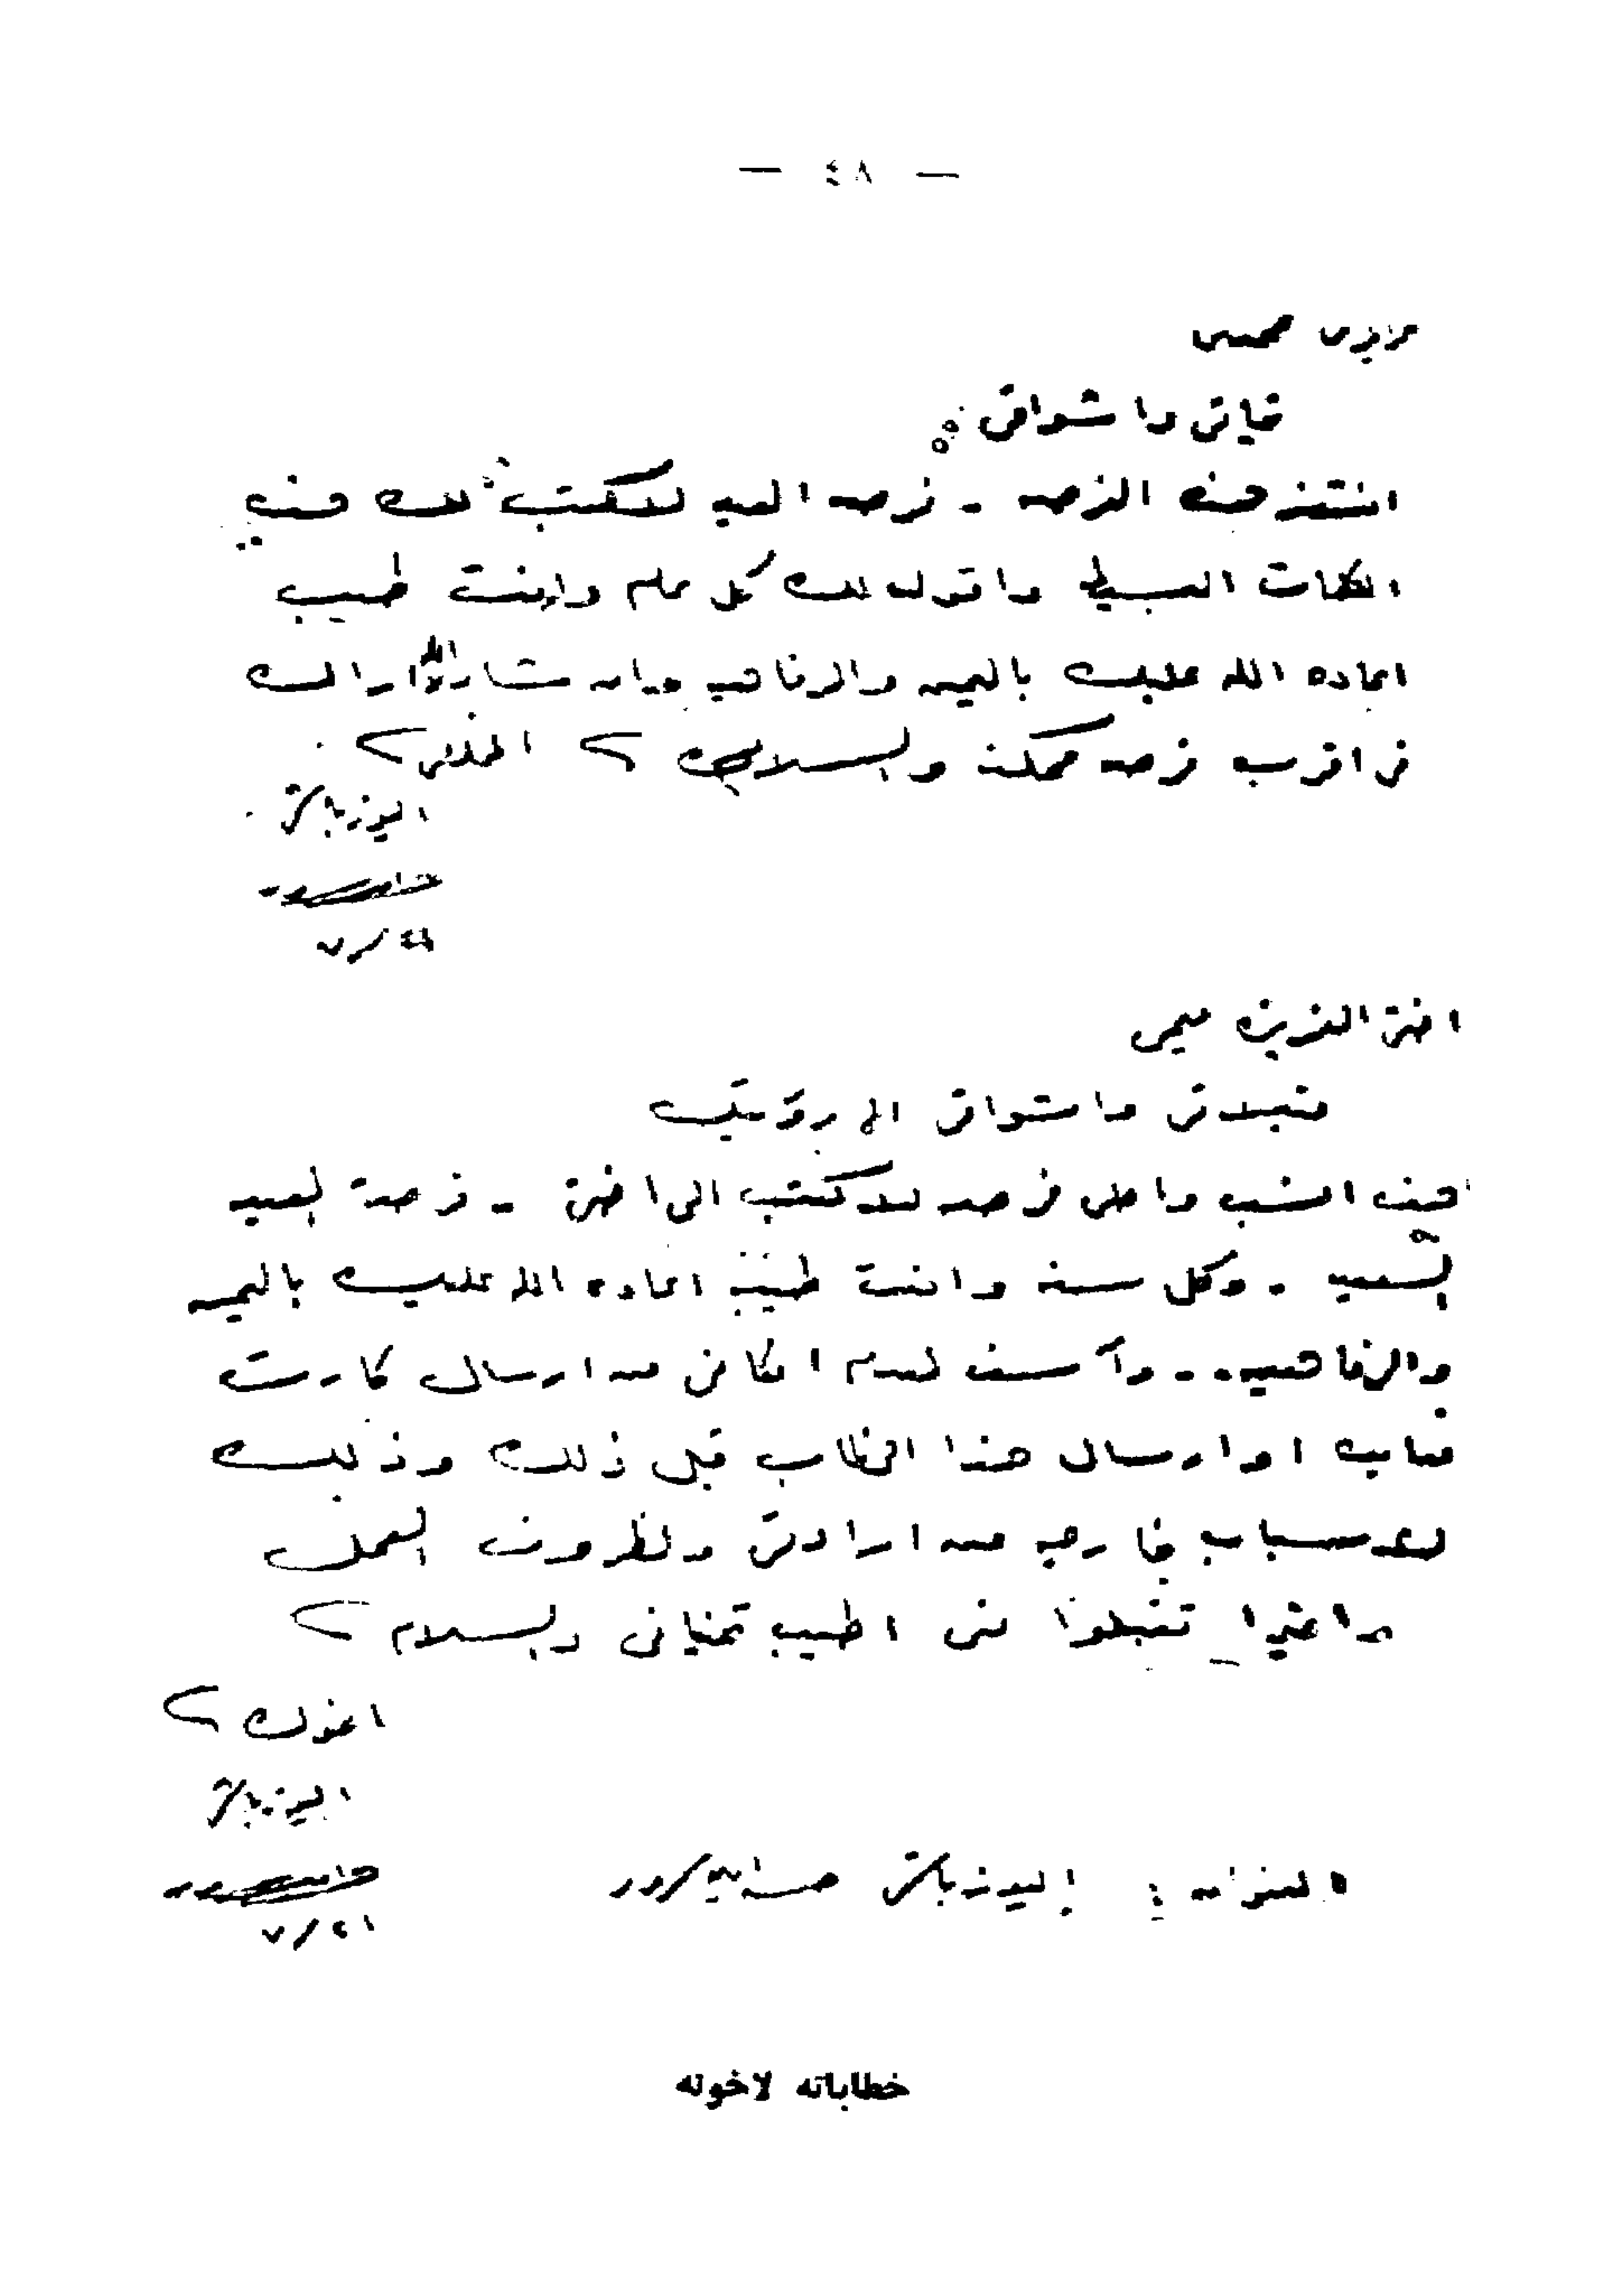 — ٤٨ —
عزيزى محسن
تحياتى واشواقى
انتهز هذه الفرصه - فرصه العيد لاكتب لك هذه
الكلمات البسيطه واقول لك كل عام وانت طيب
اعاده الله عليك باليمن والرفاهيه وان شاء الله اراك
فى اقرب فرصه ممكنه والسلام المخلص
اليوزباشى
٧/٢١
اختى العزيزه ميمى
قبلاتى واشواقى الى رؤيتك
هذه انسب واحلى فرصه لاكتب الى اختى - فرصة العيد
السعيد - وكل سنه وانت طيبه اعاده الله عليك باليمن
والرفاهيه - وآسف لعدم امكانى من ارسال كارت
معايده او ارسال هذا الخطاب قبل ذلك وذلك
لاسباب خارجه عن ارادتى ولظروف العمل
واخيرا تقبلوا منى اطيب تمنياتى والسلام
اخوك
اليوزباشى
العنوان : اليوزباشى سرور
٧/٢١
خطاباته لاخوته